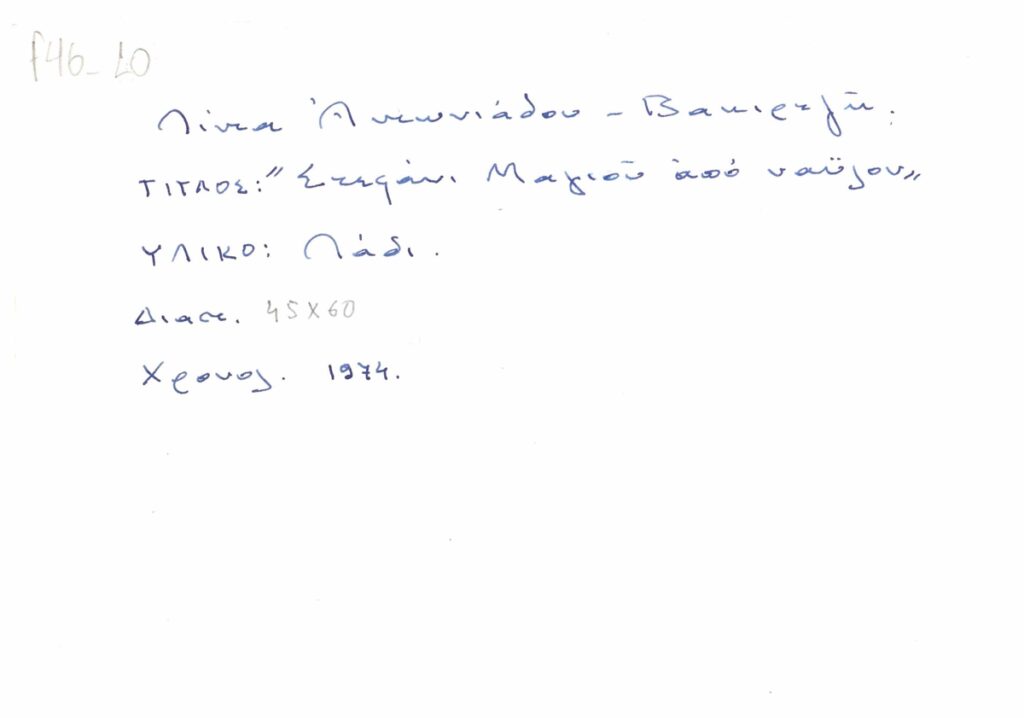 f46_20
Λίνα Ἀντωνιάδου - Βακιρτζῆ.
ΤΙΤΛΟΣ: "Στεφάνι Μαγιοῦ ἀπό ναΰλον„
ΥΛΙΚΟ: Λάδι.
Διαστ. 45X60
Χρονολ. 1974.